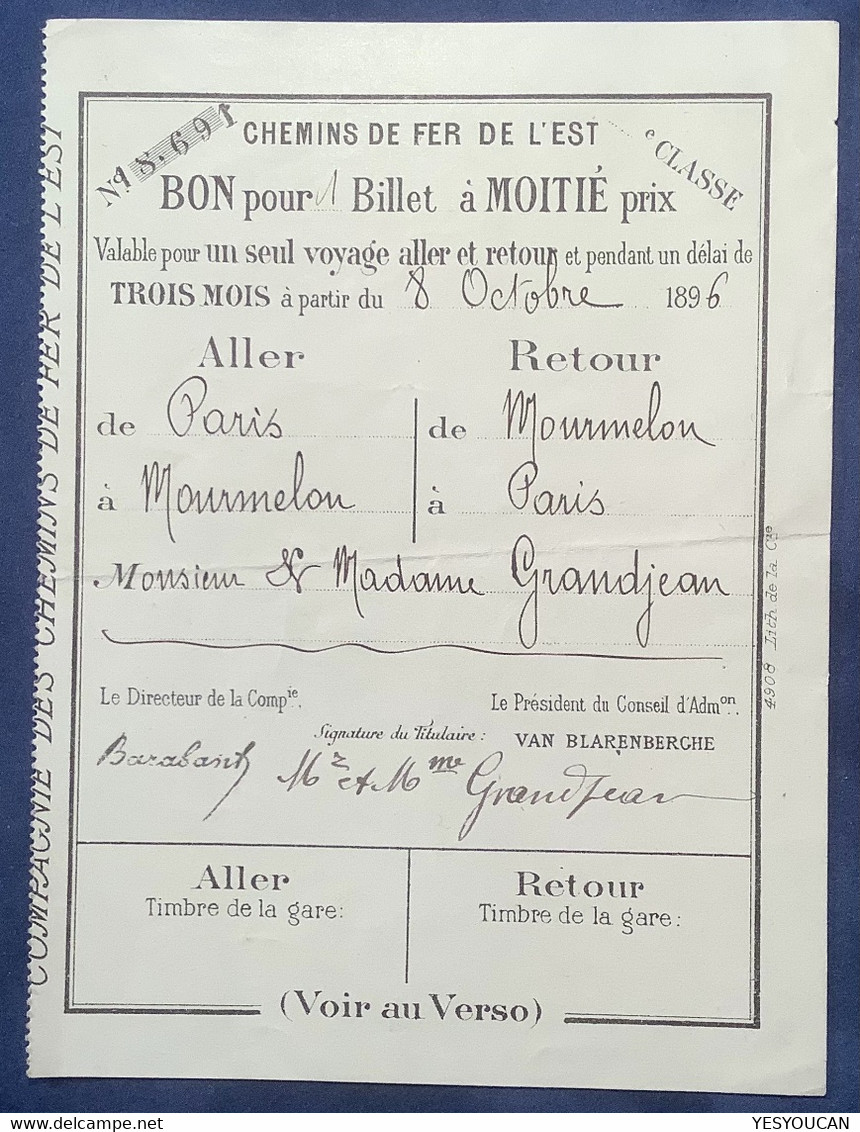 COMPAGNIE DES CHEMINS DE FER DE L'EST
No 18.691
CHEMINS DE FER DE L'EST
e CLASSE
BON pour 1 Billet à MOITIÉ prix
Valable pour un seul voyage aller et retour et pendant un délai de
TROIS MOIS à partir du 8 Octobre 1896
Aller Retour
de Paris de Mourmelon
à Mourmelon à Paris
Monsieur & Madame Grandjean
Le Directeur de la Compie. Le Président du Conseil d'Admon.
Signature du Titulaire : VAN BLARENBERGHE
Barabant Mr et Mme Grandjean
Aller Retour
Timbre de la gare: Timbre de la gare:
(Voir au Verso)
4908 Lith. de la Cie
YESYOUCAN